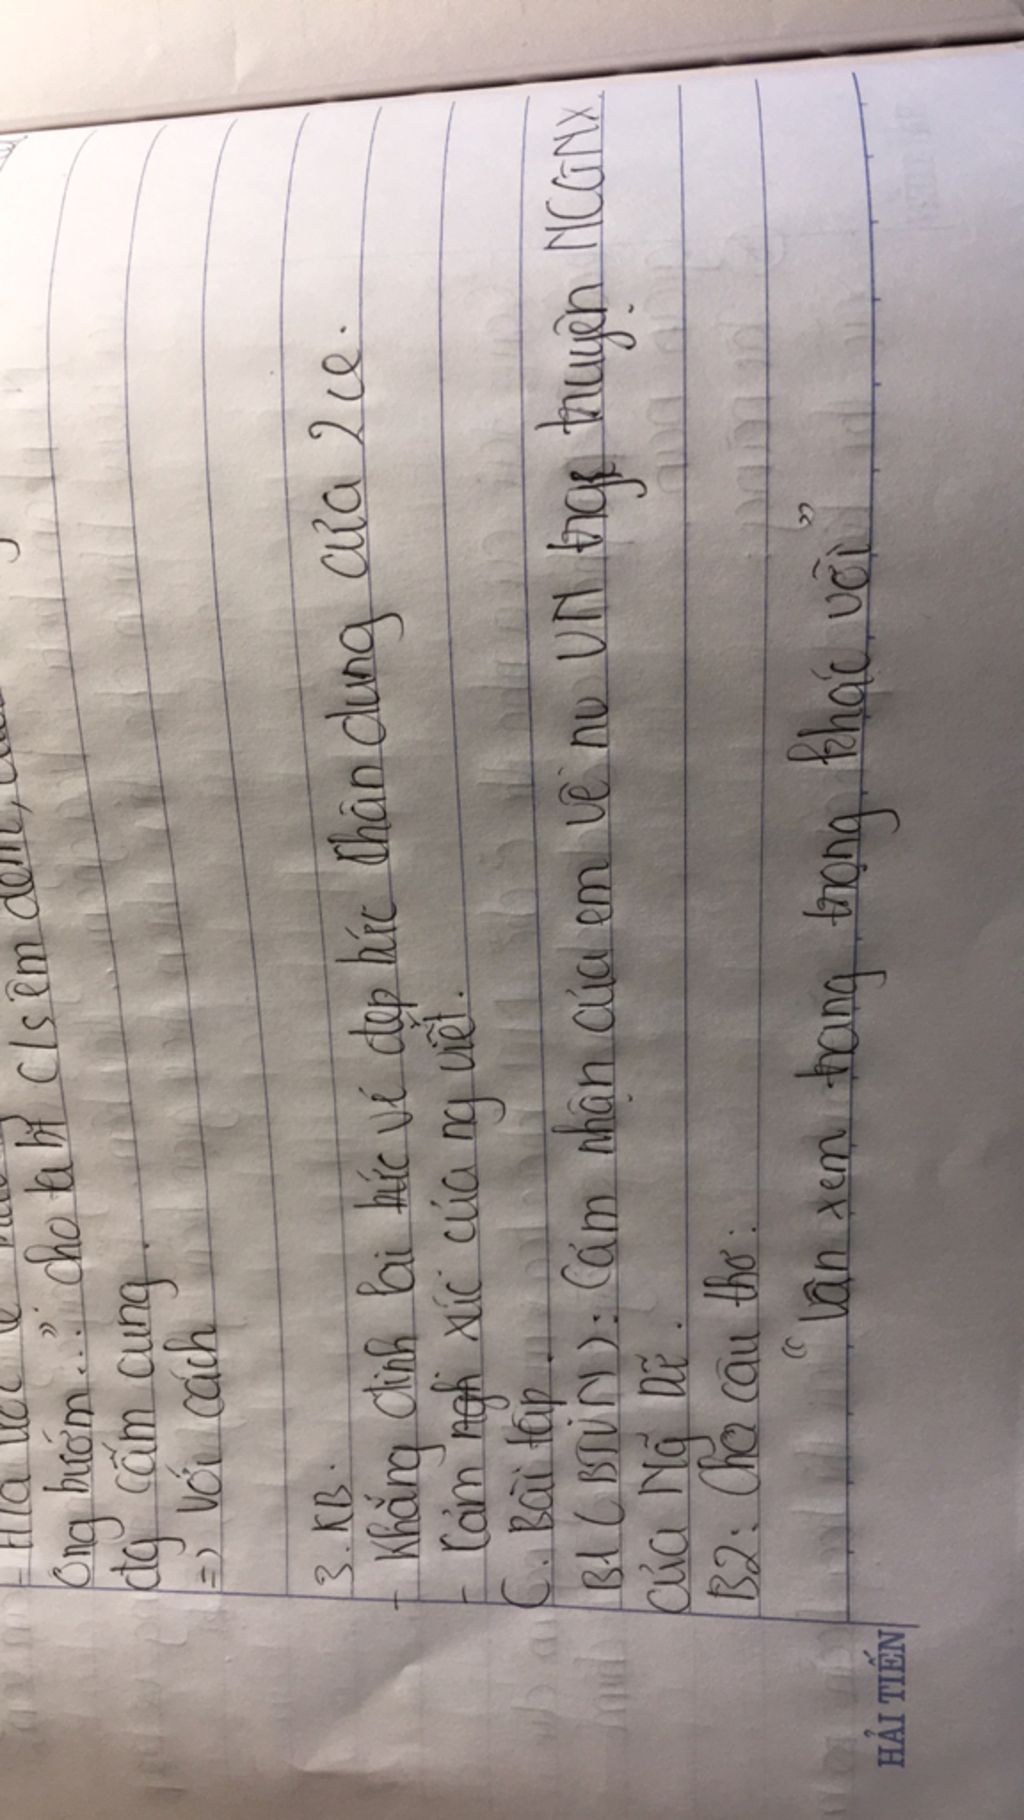 ong bướm..." cho ta bt c/s êm đềm,
đtg cấm cung.
=> với cách
3. KB.
- Khẳng định lại bức vẻ đẹp bức chân dung của 2 ce.
- Cảm xúc của ng viết.
C. Bài tập.
B1 (BTVN): Cảm nhận của em về nv VN trg truyện NCGNX
của Ng Dữ.
B2: Cho câu thơ:
"Vân xem trang trọng khác vời"
HẢI TIẾN